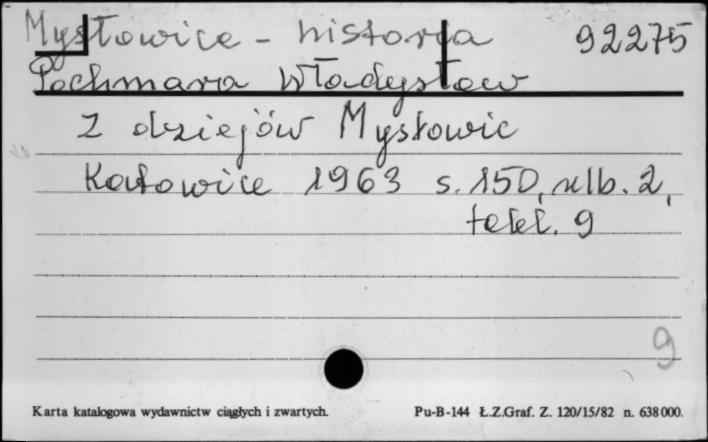 Mysłowice - historia 92275
Pochmara Władysław
Z dziejów Mysłowic
Katowice 1963 s. 150, nlb. 2,
tabl. 9
9
Karta katalogowa wydawnictw ciągłych i zwartych. Pu-B-144 Ł.Z.Graf. Z. 120/15/82 n. 638000.